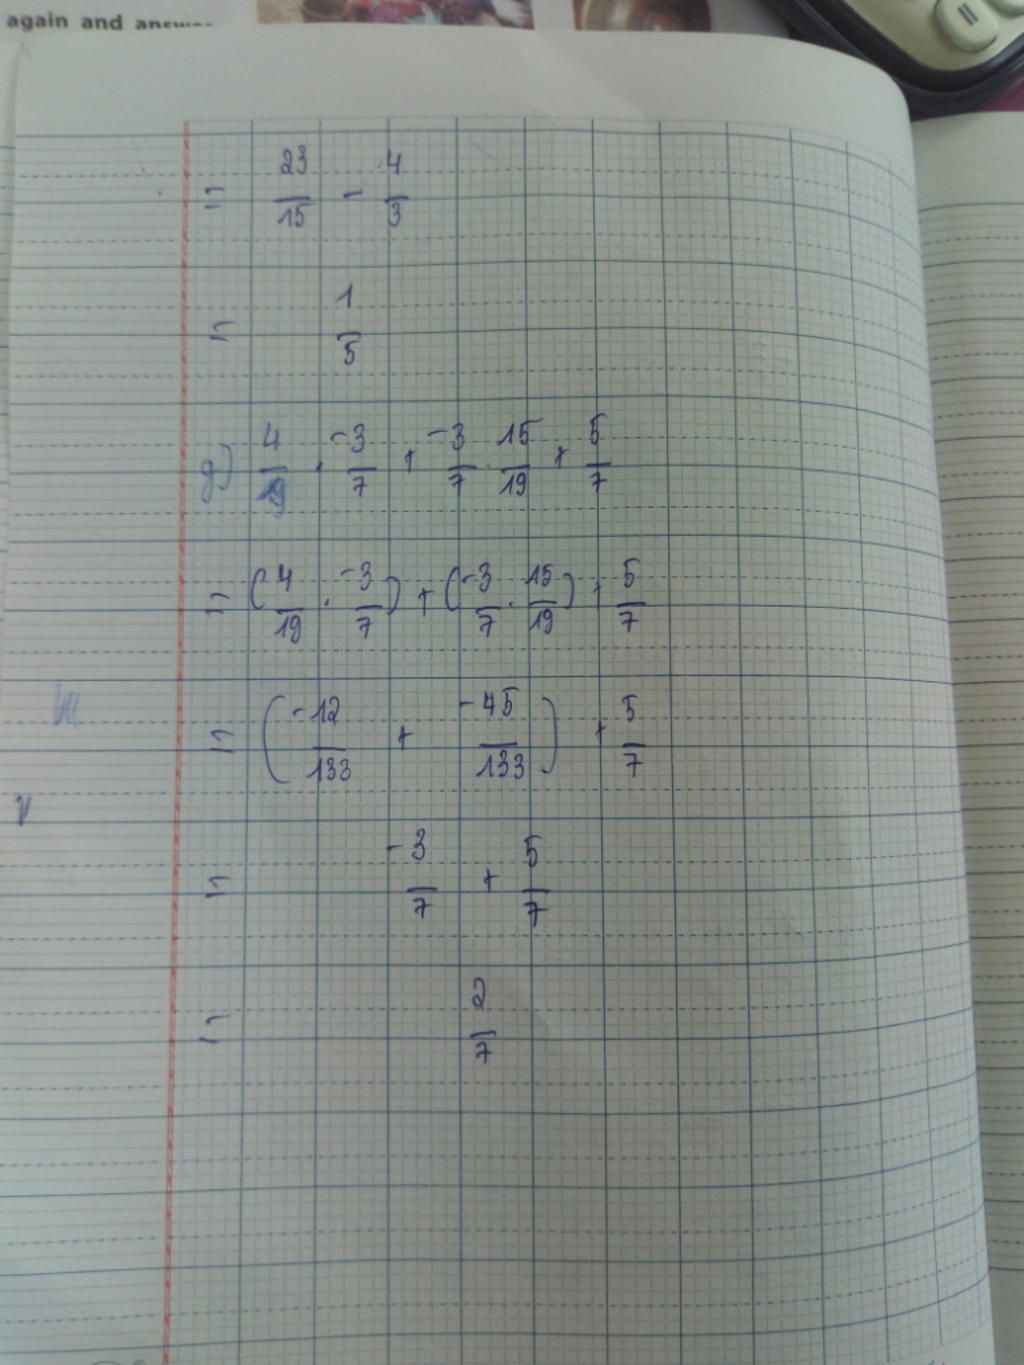 again and answer
= 23/15 - 4/3
= 1/5
g) 4/19 . -3/7 + -3/7 . 15/19 + 5/7
= (4/19 . -3/7) + (-3/7 . 15/19) + 5/7
= (-12/133 + -45/133) + 5/7
= -3/7 + 5/7
= 2/7